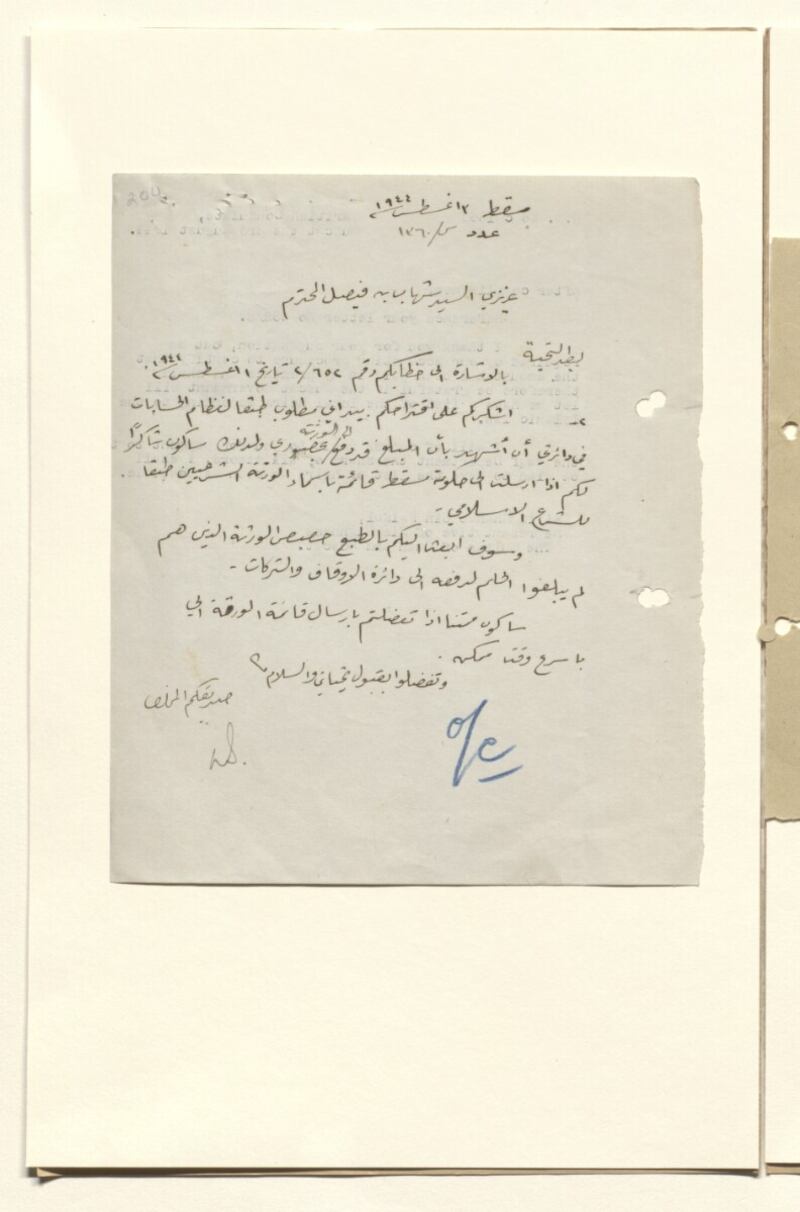 204
مسقط ١٣ اغسطس ١٩٤٤
عدد س/١٣٦٠
عزيزي السيد شهاب بن فيصل المحترم
بعد التحية
بالاشارة الى خطابكم رقم ٢/٦٥٢ تاريخ ١ اغسطس
٢- اشكركم على اقتراحكم بيد اني مطلوب طبقا لنظام الحسابات
في دائرتي أن أشهد بأن المبلغ قد دفع الى الورثة بحضوري ولذلك ساكون شاكرًا
لكم اذا ارسلت لى حكومة مسقط قائمة باسماء الورثة الشرعيين طبقا
للشرع الاسلامي -
وسوف ابعث اليكم بالطبع حصص الورثة الذين هم
لم يبلغوا الحلم لدفعه الى دائرة الاوقاف والتركات -
ساكون ممتنا اذا تفضلتم بارسال قائمة الورثة الي
باسرع وقت ممكن .
وتفضلوا بقبول تحياتي والسلام
صديقكم المخلص
o/c